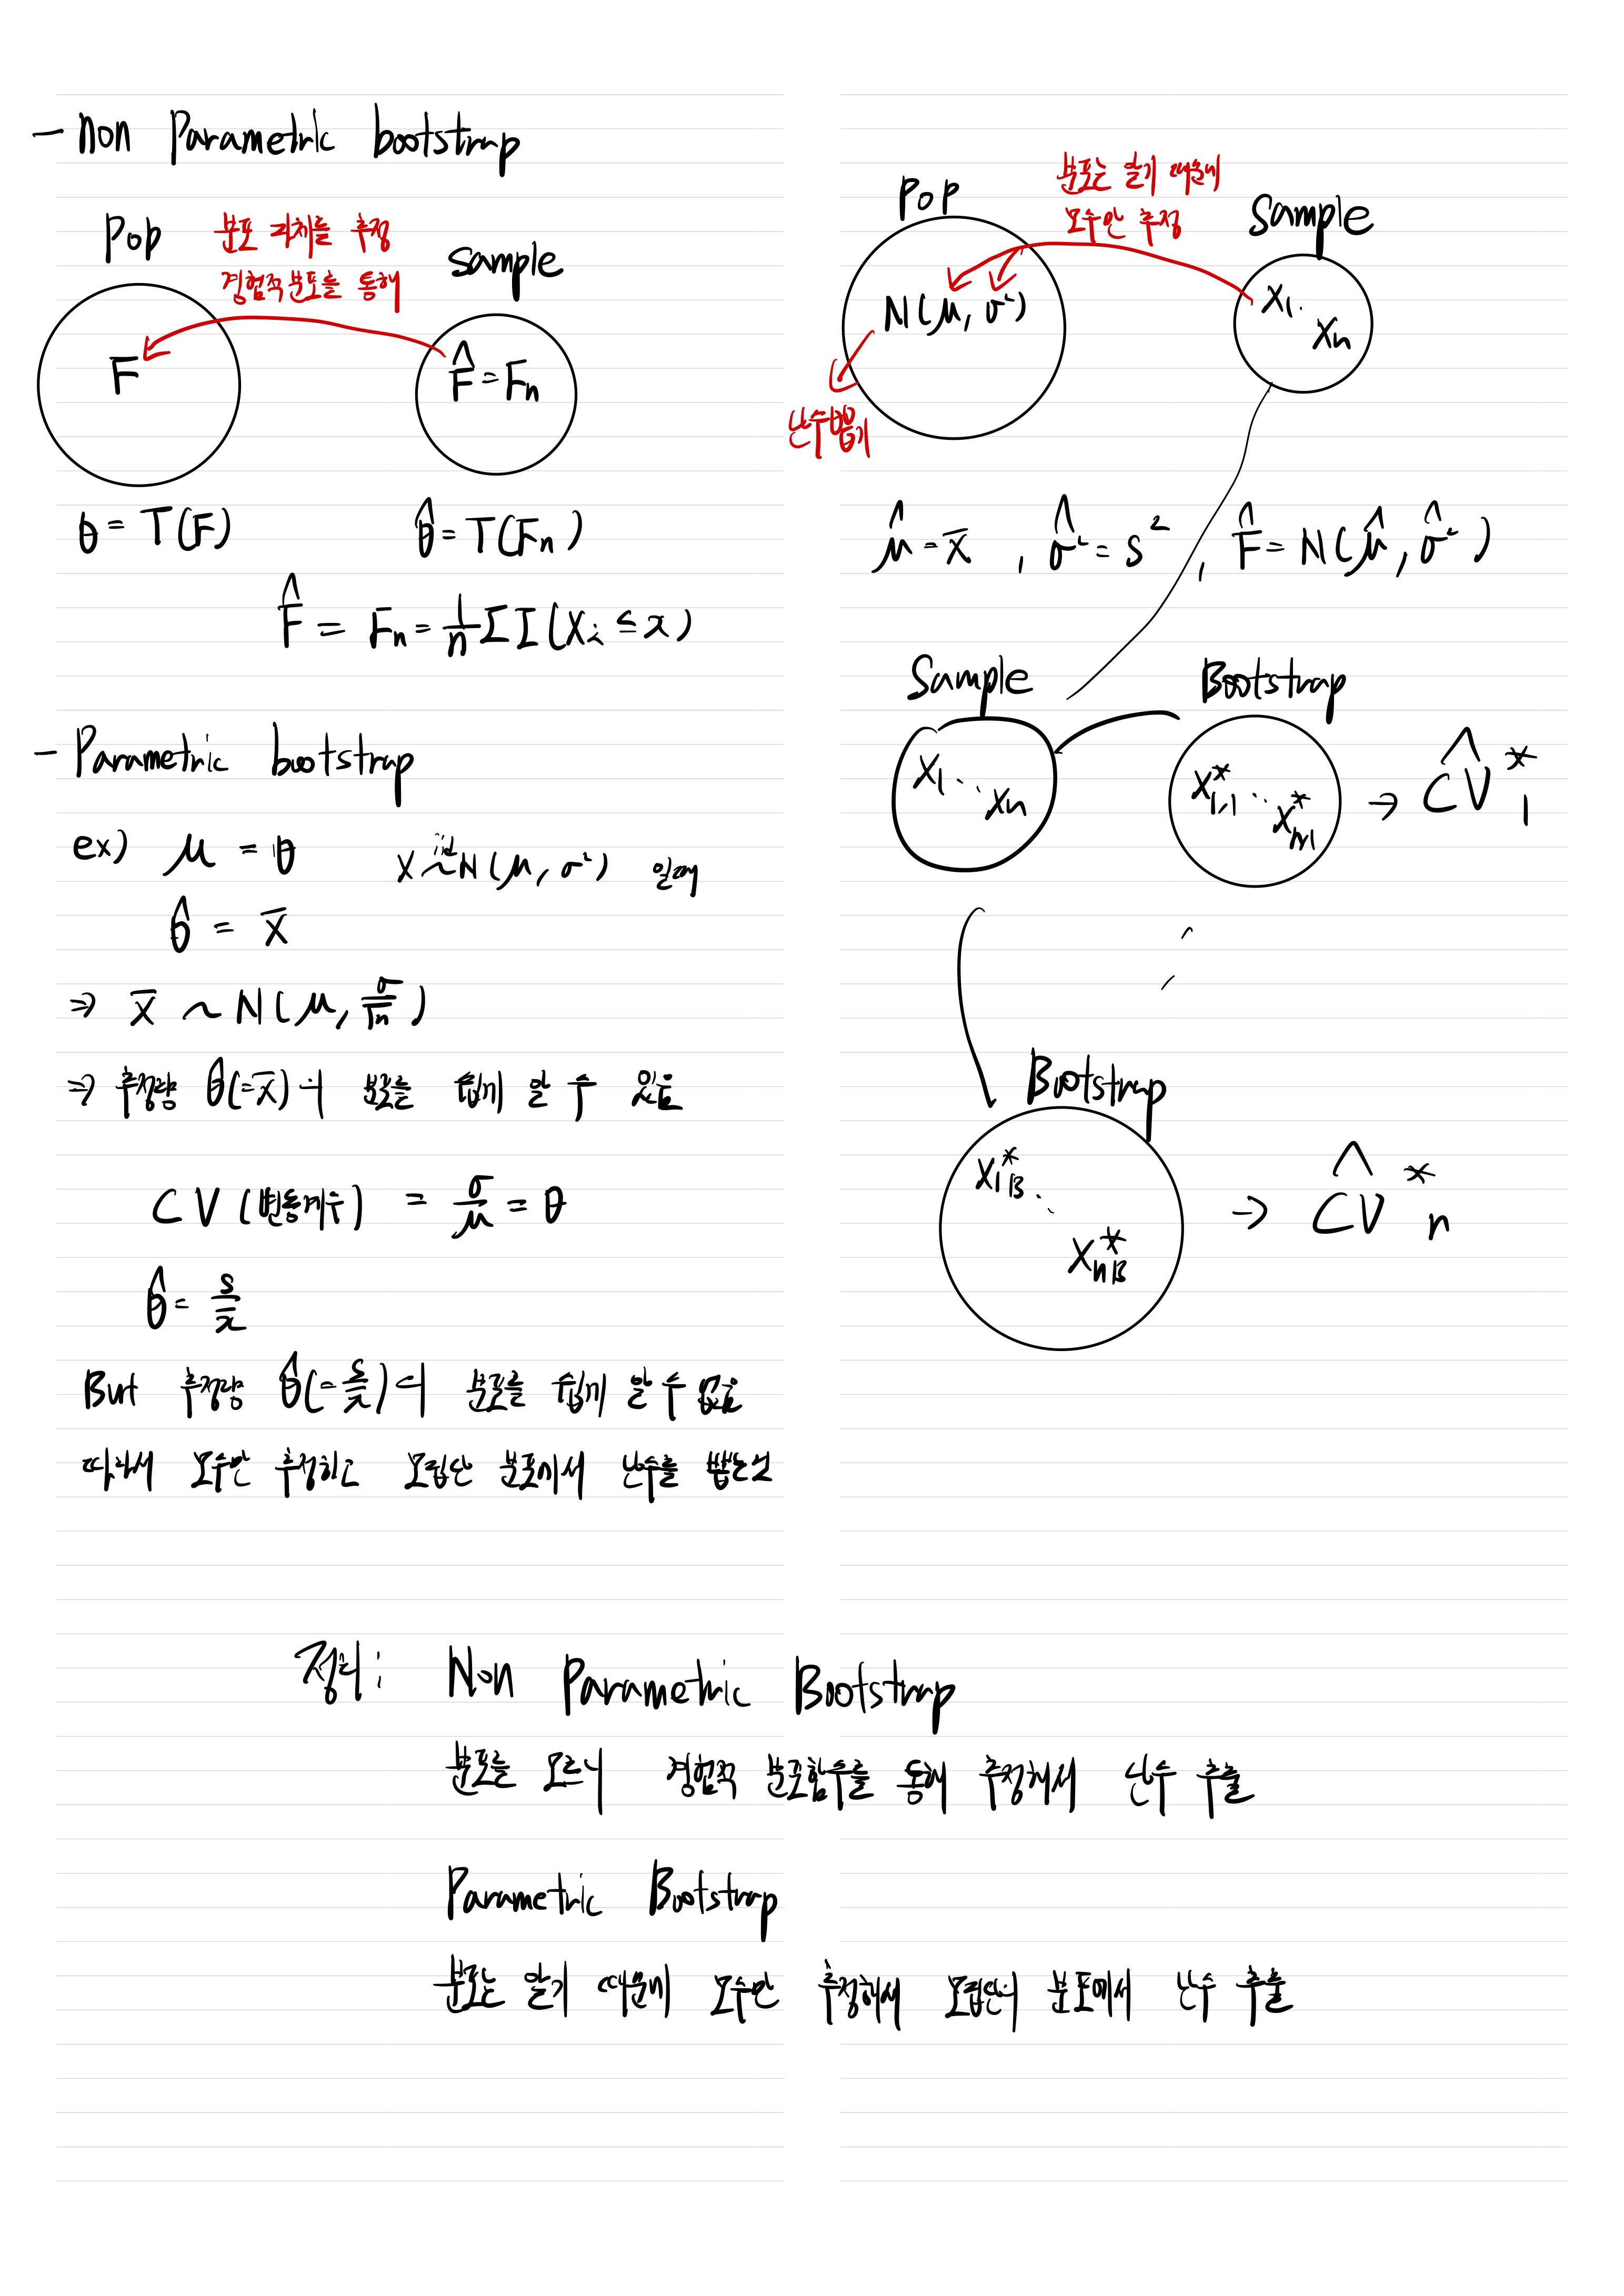 - non Parametric bootstrap
Pop
분포 자체를 추정
경험적분포를 통해
sample
F
F̂ = Fn
θ = T(F)
θ̂ = T(Fn)
F̂ = Fn = 1/n Σ I(Xi ≤ x)
- Parametric bootstrap
ex) μ = θ
X iid~ N(μ, σ²) 일때
θ̂ = x̄
⇒ x̄ ~ N(μ, σ/√n)
⇒ 추정량 θ̂(=x̄)의 분포를 쉽게 알 수 있음
CV(변동계수) = σ/μ = θ
θ̂ = s/x̄
But 추정량 θ̂(=s/x̄)의 분포를 쉽게 알 수 없음
따라서 모수만 추정하고 모집단 분포에서 난수를 뽑는것
Pop
분포는 알기 때문에
모수만 추정
Sample
N(μ, σ²)
X1 · Xn
난수뽑기
μ̂ = x̄ , σ̂² = s² , F̂ = N(μ̂, σ̂²)
Sample
Bootstrap
X1 ··· Xn
X*1,1 ·· X*n1 → ĈV*1
Bootstrap
X*1B ··· X*nB → ĈV*n
정리: Non Parametric Bootstrap
분포를 모르니 경험적 분포함수를 통해 추정해서 난수 추출
Parametric Bootstrap
분포는 알기 때문에 모수만 추정해서 모집단의 분포에서 난수 추출